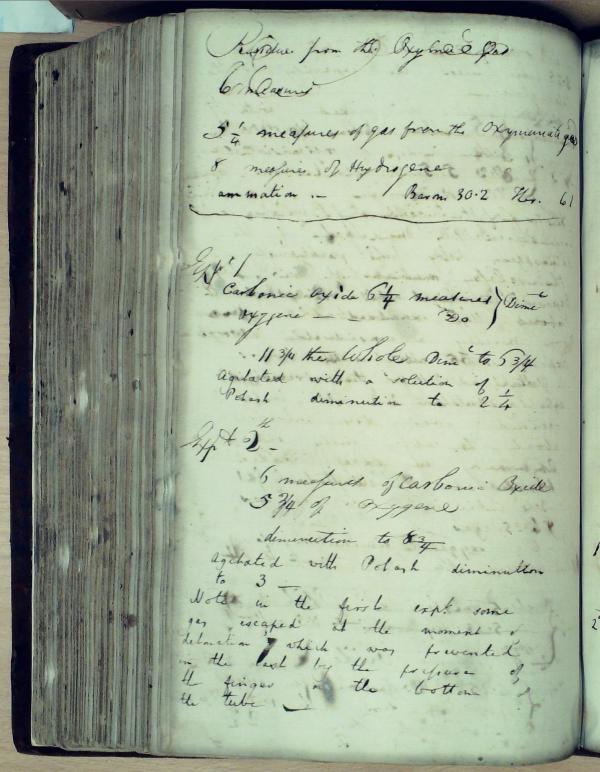 Residue from the Oxymuriatic Gas
6 Measures
5 1/4 measures of gas from the Oxymuriatic gas
8 measures of Hydrogene
Barom 30.2 Ther. 61
Expt 1
Carbonic oxide 6 1/4 measures } Dimn
Oxygene — — Do
11 3/4 the Whole Dimn to 6 3/4
Agitated with a solution of
Potash diminution to 2 1/4
Expt 2d -
6 measures of Carbonic Oxide
5 3/4 of oxygene
diminution to 8 3/4
Agitated with Potash diminution
to 3 —
Note in the first expt some
gas escaped at the moment of
detonation, which was prevented
in the last by the pressure of
the finger on the bottom of
the tube —